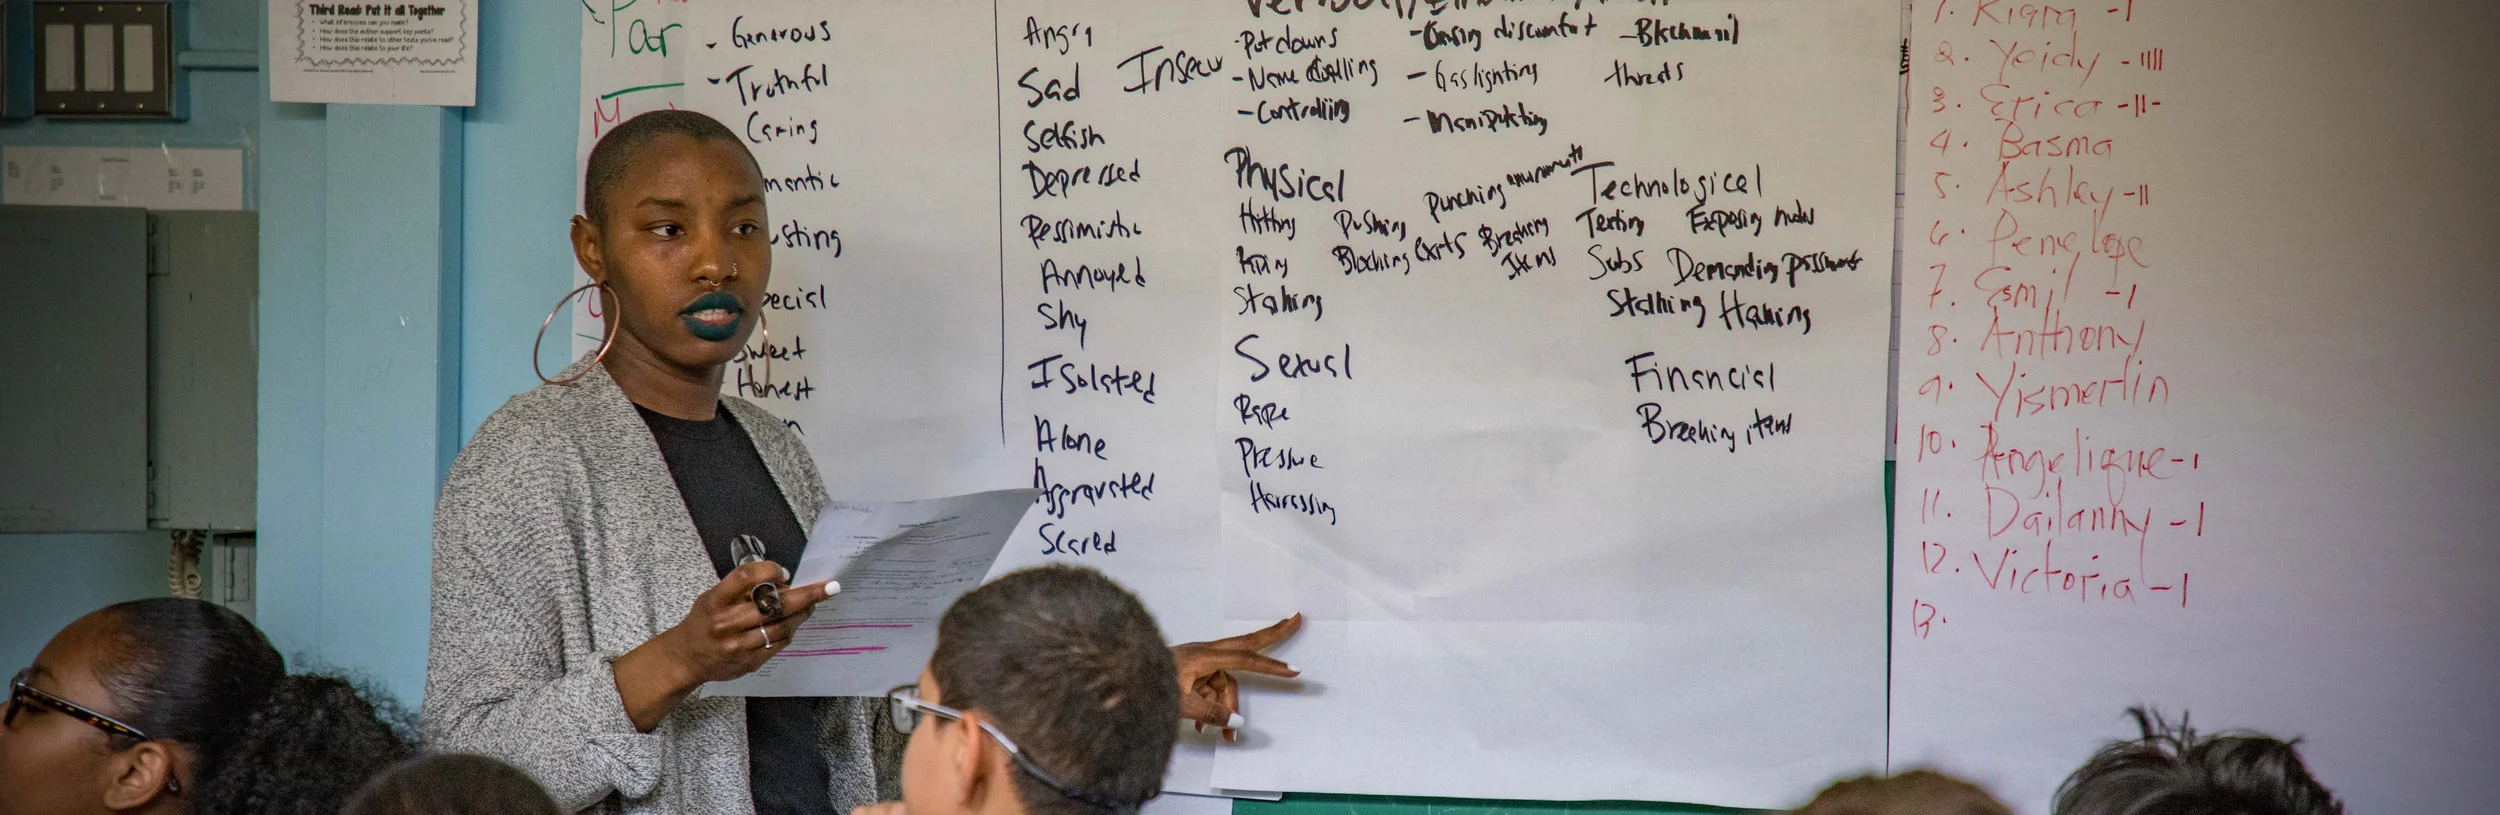 Third Read: Put it all Together
What inferences can you make?
How does the author support key points?
How does this relate to other texts you've read?
How does this relate to your life?
Par
- Generous
- Truthful
Caring
mantic
usting
pecial
Sweet
Honest
Angry
Insecu
Sad
Selfish
Depressed
Pessimistic
Annoyed
Shy
Isolated
Alone
Aggravated
Scared
- Put downs
- Name calling
- Controlling
- Causing discomfort
- Gaslighting
- Manipulating
- Blackmail
threats
Physical
Hitting Pushing Punching
Blocking exits Breaking Items
Stalking
Sexual
Rape
Pressure
Harrassing
Technological
Texting Exposing nudes
Subs Demanding passwords
Stalking Hacking
Financial
Breaking items
1. Kiara - I
2. Yeidy - IIII
3. Erica - II -
4. Basma
5. Ashley - II
6. Penelope
7. Esmil - I
8. Anthony
9. Yismerlin
10. Angelique - I
11. Dailanny - I
12. Victoria - I
13.